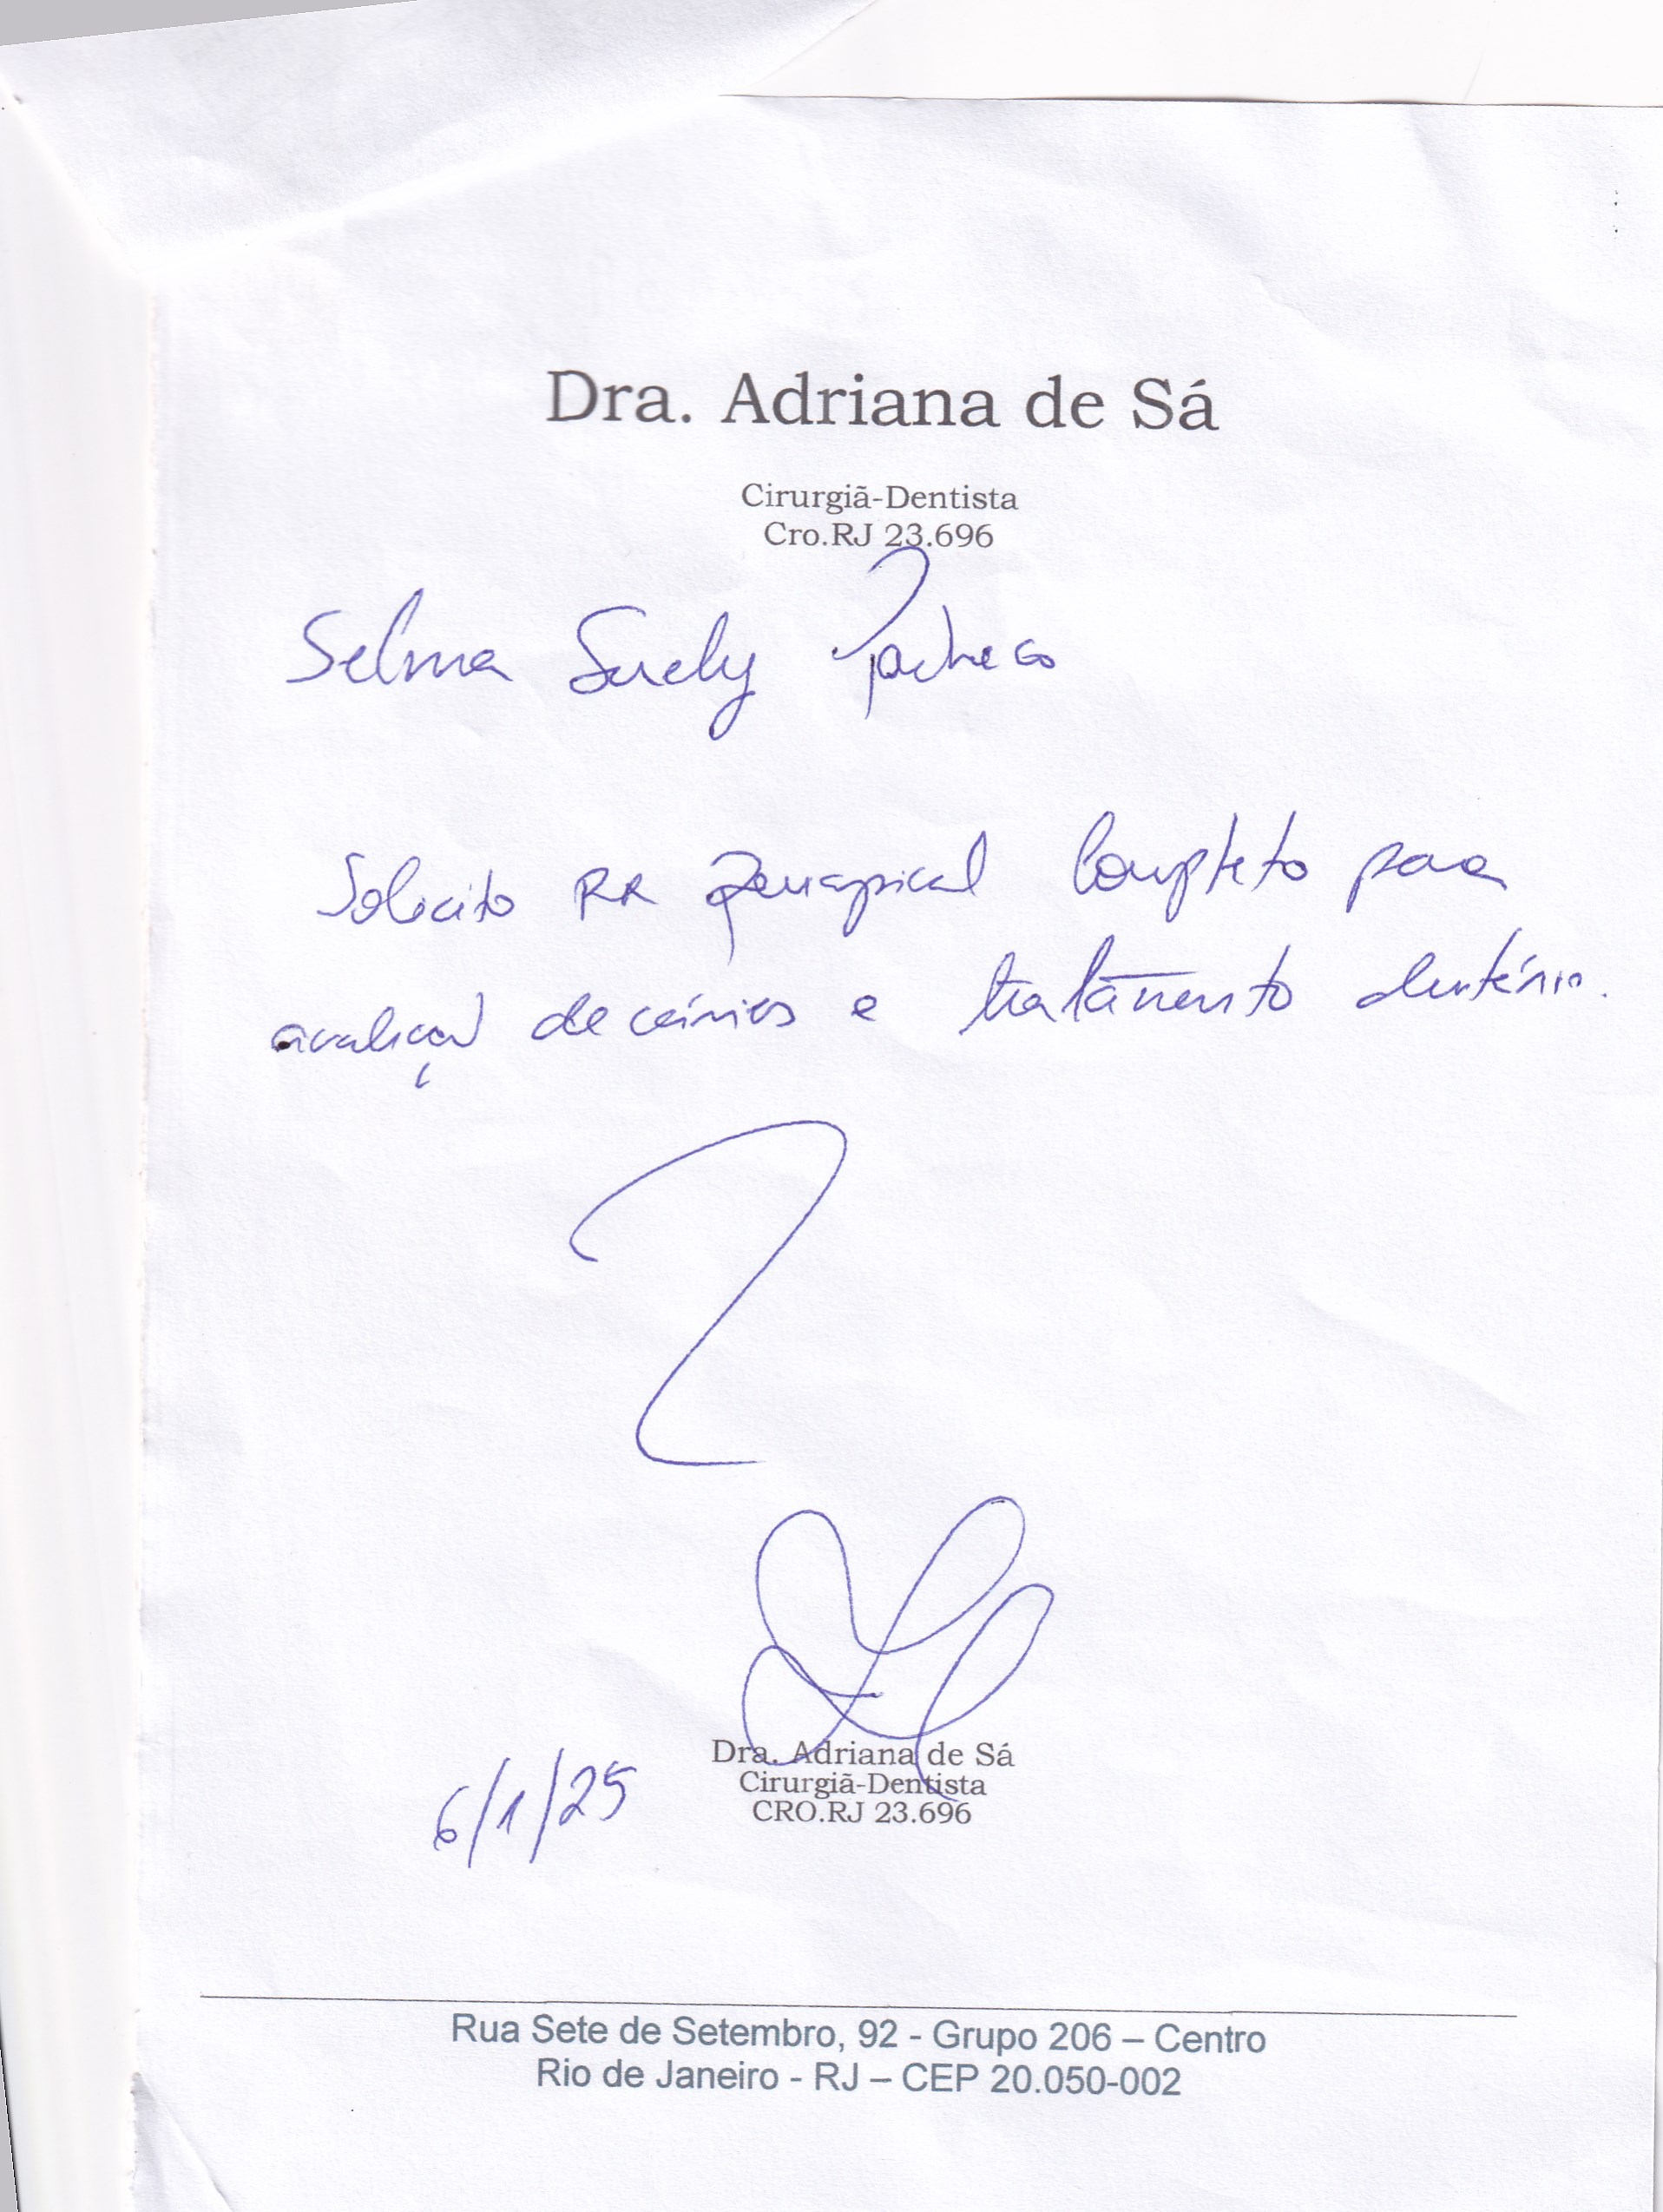 Dra. Adriana de Sá
Cirurgiã-Dentista
Cro.RJ 23.696
Selma Suely Pacheco
Solicito RX Periapical Completo para
avaliação de cáries e tratamento dentário.
Dra. Adriana de Sá
Cirurgiã-Dentista
CRO.RJ 23.696
6/1/25
Rua Sete de Setembro, 92 - Grupo 206 – Centro
Rio de Janeiro - RJ – CEP 20.050-002